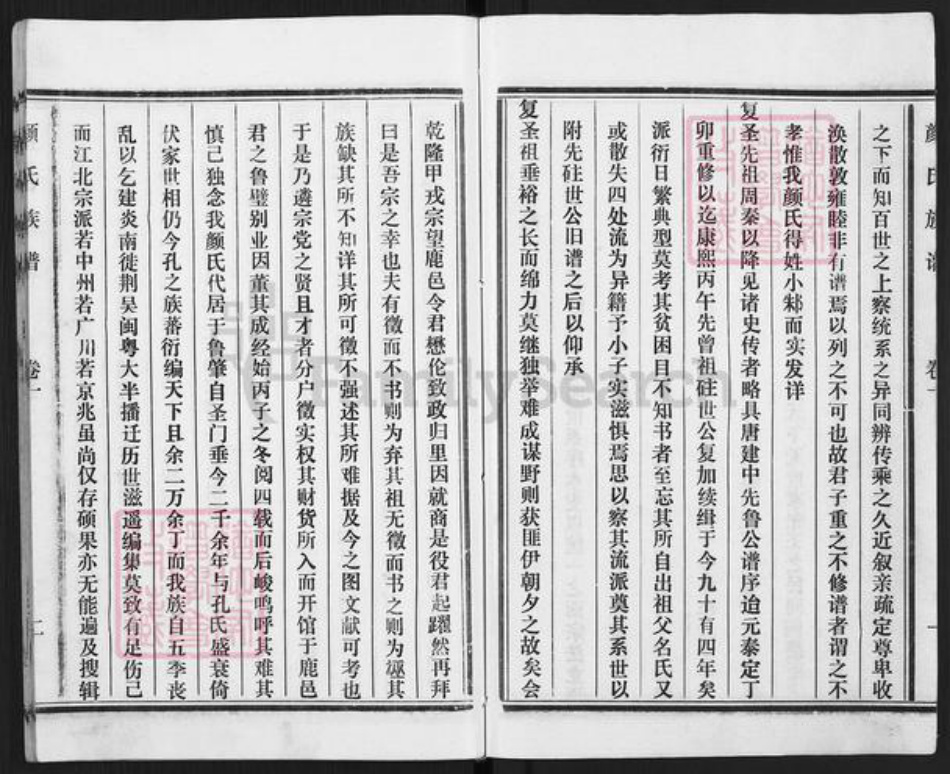 之下而知百世之上察统系之异同辨传乘之久近叙亲疏定尊卑收
涣散敦雍睦非有谱焉以列之不可也故君子重之不修谱者谓之不
孝惟我颜氏得姓小邾而实发详
复圣先祖周秦以降见诸史传者略具唐建中先鲁公谱序迨元泰定丁
卯重修以迄康熙丙午先曾祖砫世公复加续缉于今九十有四年矣
派衍日繁典型莫考其贫困目不知书者至忘其所自出祖父名氏又
或散失四处流为异籍予小子实滋惧焉思以察其流派奠其系世以
附先砫世公旧谱之后以仰承
复圣祖垂裕之长而绵力莫继独举难成谋野则获匪伊朝夕之故矣会
乾隆甲戎宗望鹿邑令君懋伦致政归里因就商是役君起躍然再拜
曰是吾宗之幸也夫有徵而不书则为弃其祖无徵而书之则为诬其
族缺其所不知详其所可徵不强述其所难据及今之图文献可考也
于是乃遴宗党之贤且才者分户徵实权其财货所入而开馆于鹿邑
君之鲁璧别业因董其成经始丙子之冬阅四载而后峻鸣呼其难其
慎己独念我颜氏代居于鲁肇自圣门垂今二千余年与孔氏盛衰倚
伏家世相仍今孔之族蕃衍编天下且余二万余丁而我族自五季丧
乱以乞建炎南徙荆吴闽粤大半播迁历世滋遥编集莫致有足伤己
而江北宗派若中州若广川若京兆虽尚仅存硕果亦无能遍及搜辑
颜氏族谱 卷一 二
FamilySearch